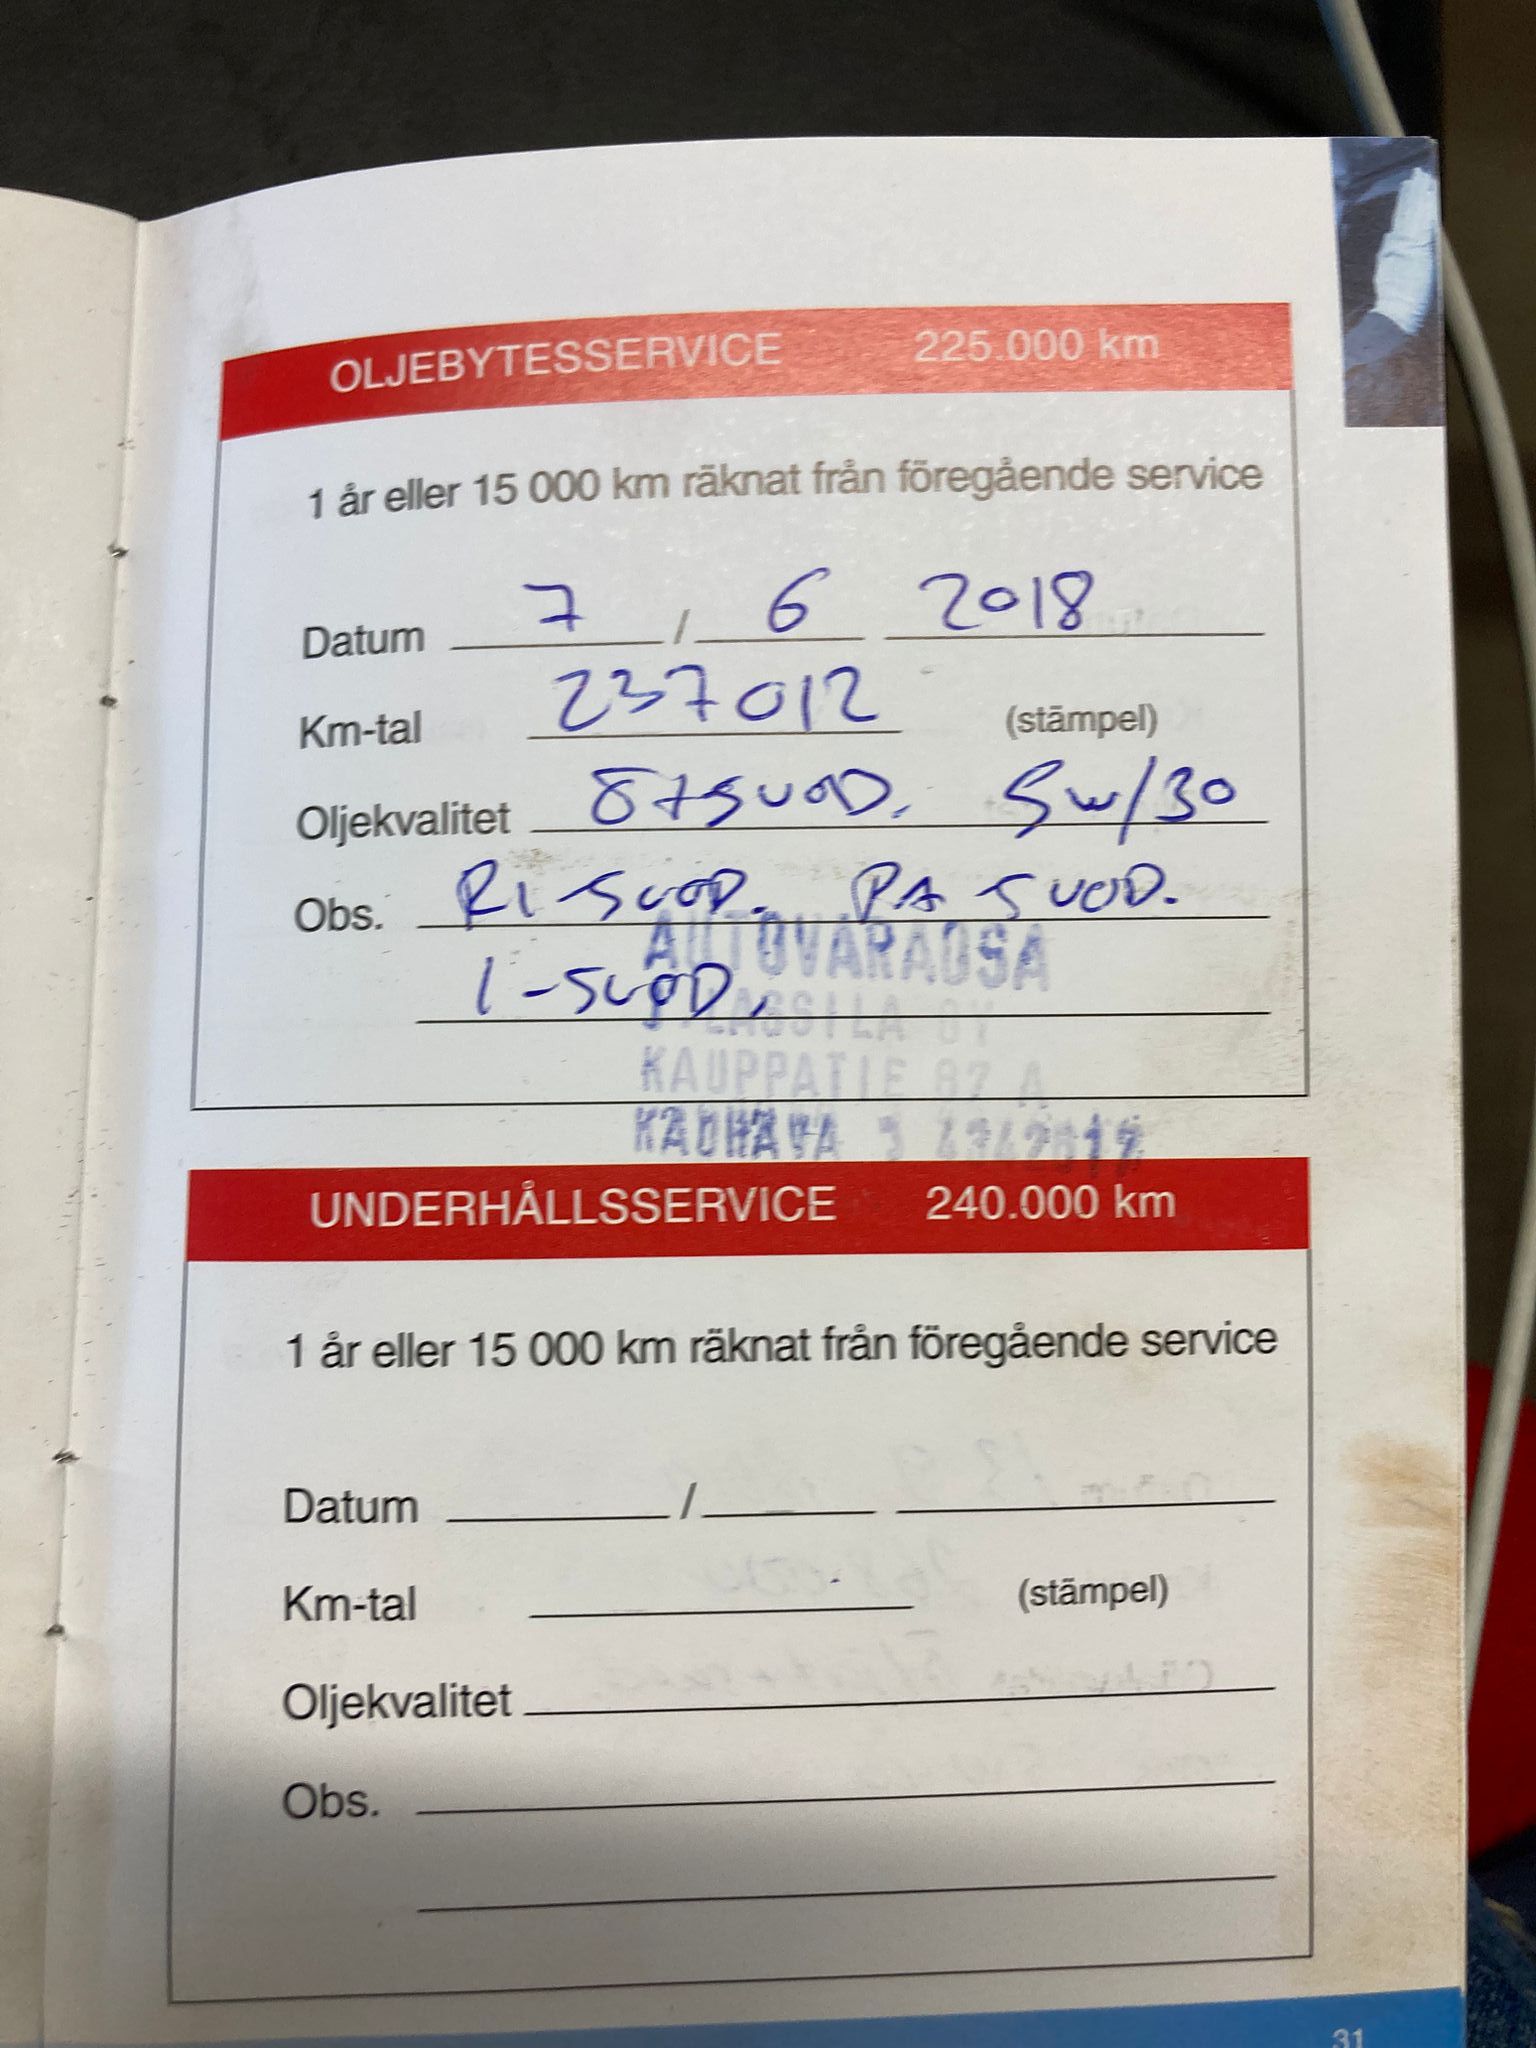 OLJEBYTESSERVICE 225.000 km
1 år eller 15 000 km räknat från föregående service
Datum 7 / 6 2018
Km-tal 237012 (stämpel)
Oljekvalitet Ö+SUOD. 5W/30
Obs. RI-SUOD. PA SUOD.
I-SUOD.
AUTOVARAOSA
J. LASSILA OY
KAUPPATIE 87 A
KAUHAVA
UNDERHÅLLSSERVICE 240.000 km
1 år eller 15 000 km räknat från föregående service
Datum /
Km-tal (stämpel)
Oljekvalitet
Obs.
31